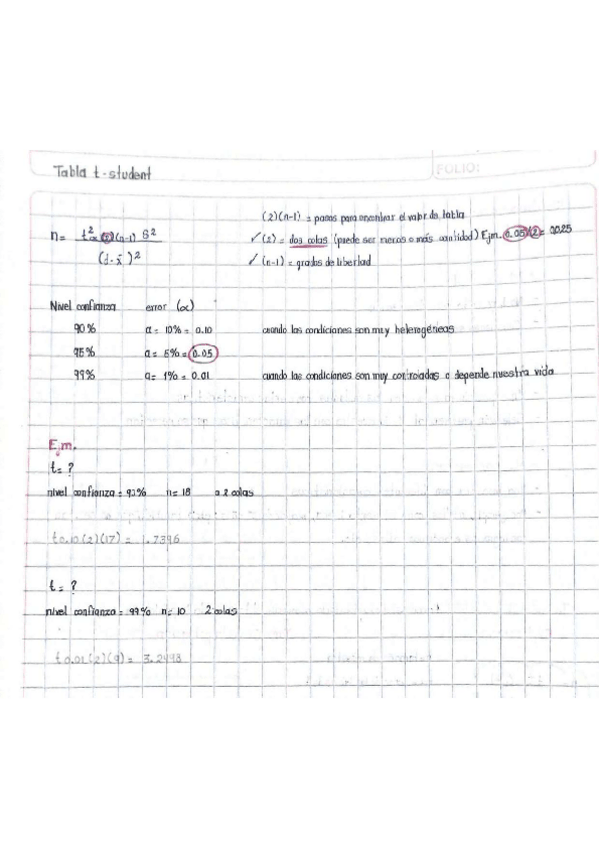 Tabla t-student
FOLIO:
(2)(n-1) = pasos para encontrar el valor de tabla
n= t²α(2)(n-1) S²
(d-x̄)²
✓ (2) = dos colas (puede ser menos o más cantidad) Ejm. 0.05/2 = 0.025
✓ (n-1) = grados de libertad
Nivel confianza error (α)
90% α= 10% = 0.10 cuando las condiciones son muy heterogéneas
95% α= 5% = 0.05
99% α= 1% = 0.01 cuando las condiciones son muy controladas o depende nuestra vida
Ejm.
t= ?
nivel confianza = 90% n= 18 a 2 colas
t0.10(2)(17) = 1.7396
t= ?
nivel confianza = 99% n= 10 2 colas
t0.01(2)(9) = 3.2498